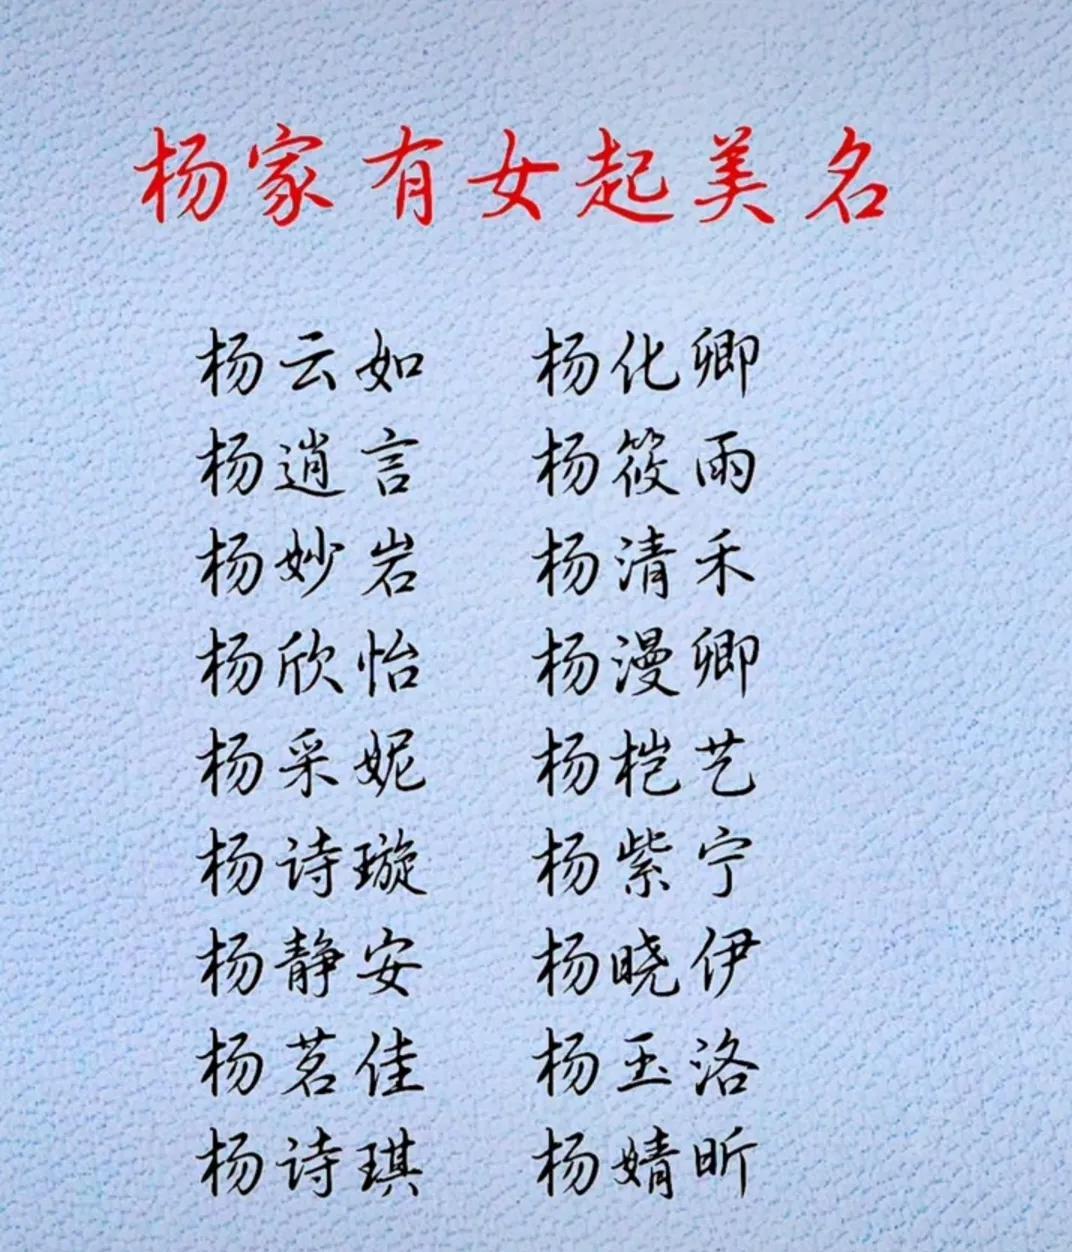 杨家有女起美名
杨云如 杨化卿
杨逍言 杨筱雨
杨妙岩 杨清禾
杨欣怡 杨漫卿
杨采妮 杨桤艺
杨诗璇 杨紫宁
杨静安 杨晓伊
杨茗佳 杨玉洛
杨诗琪 杨婧昕